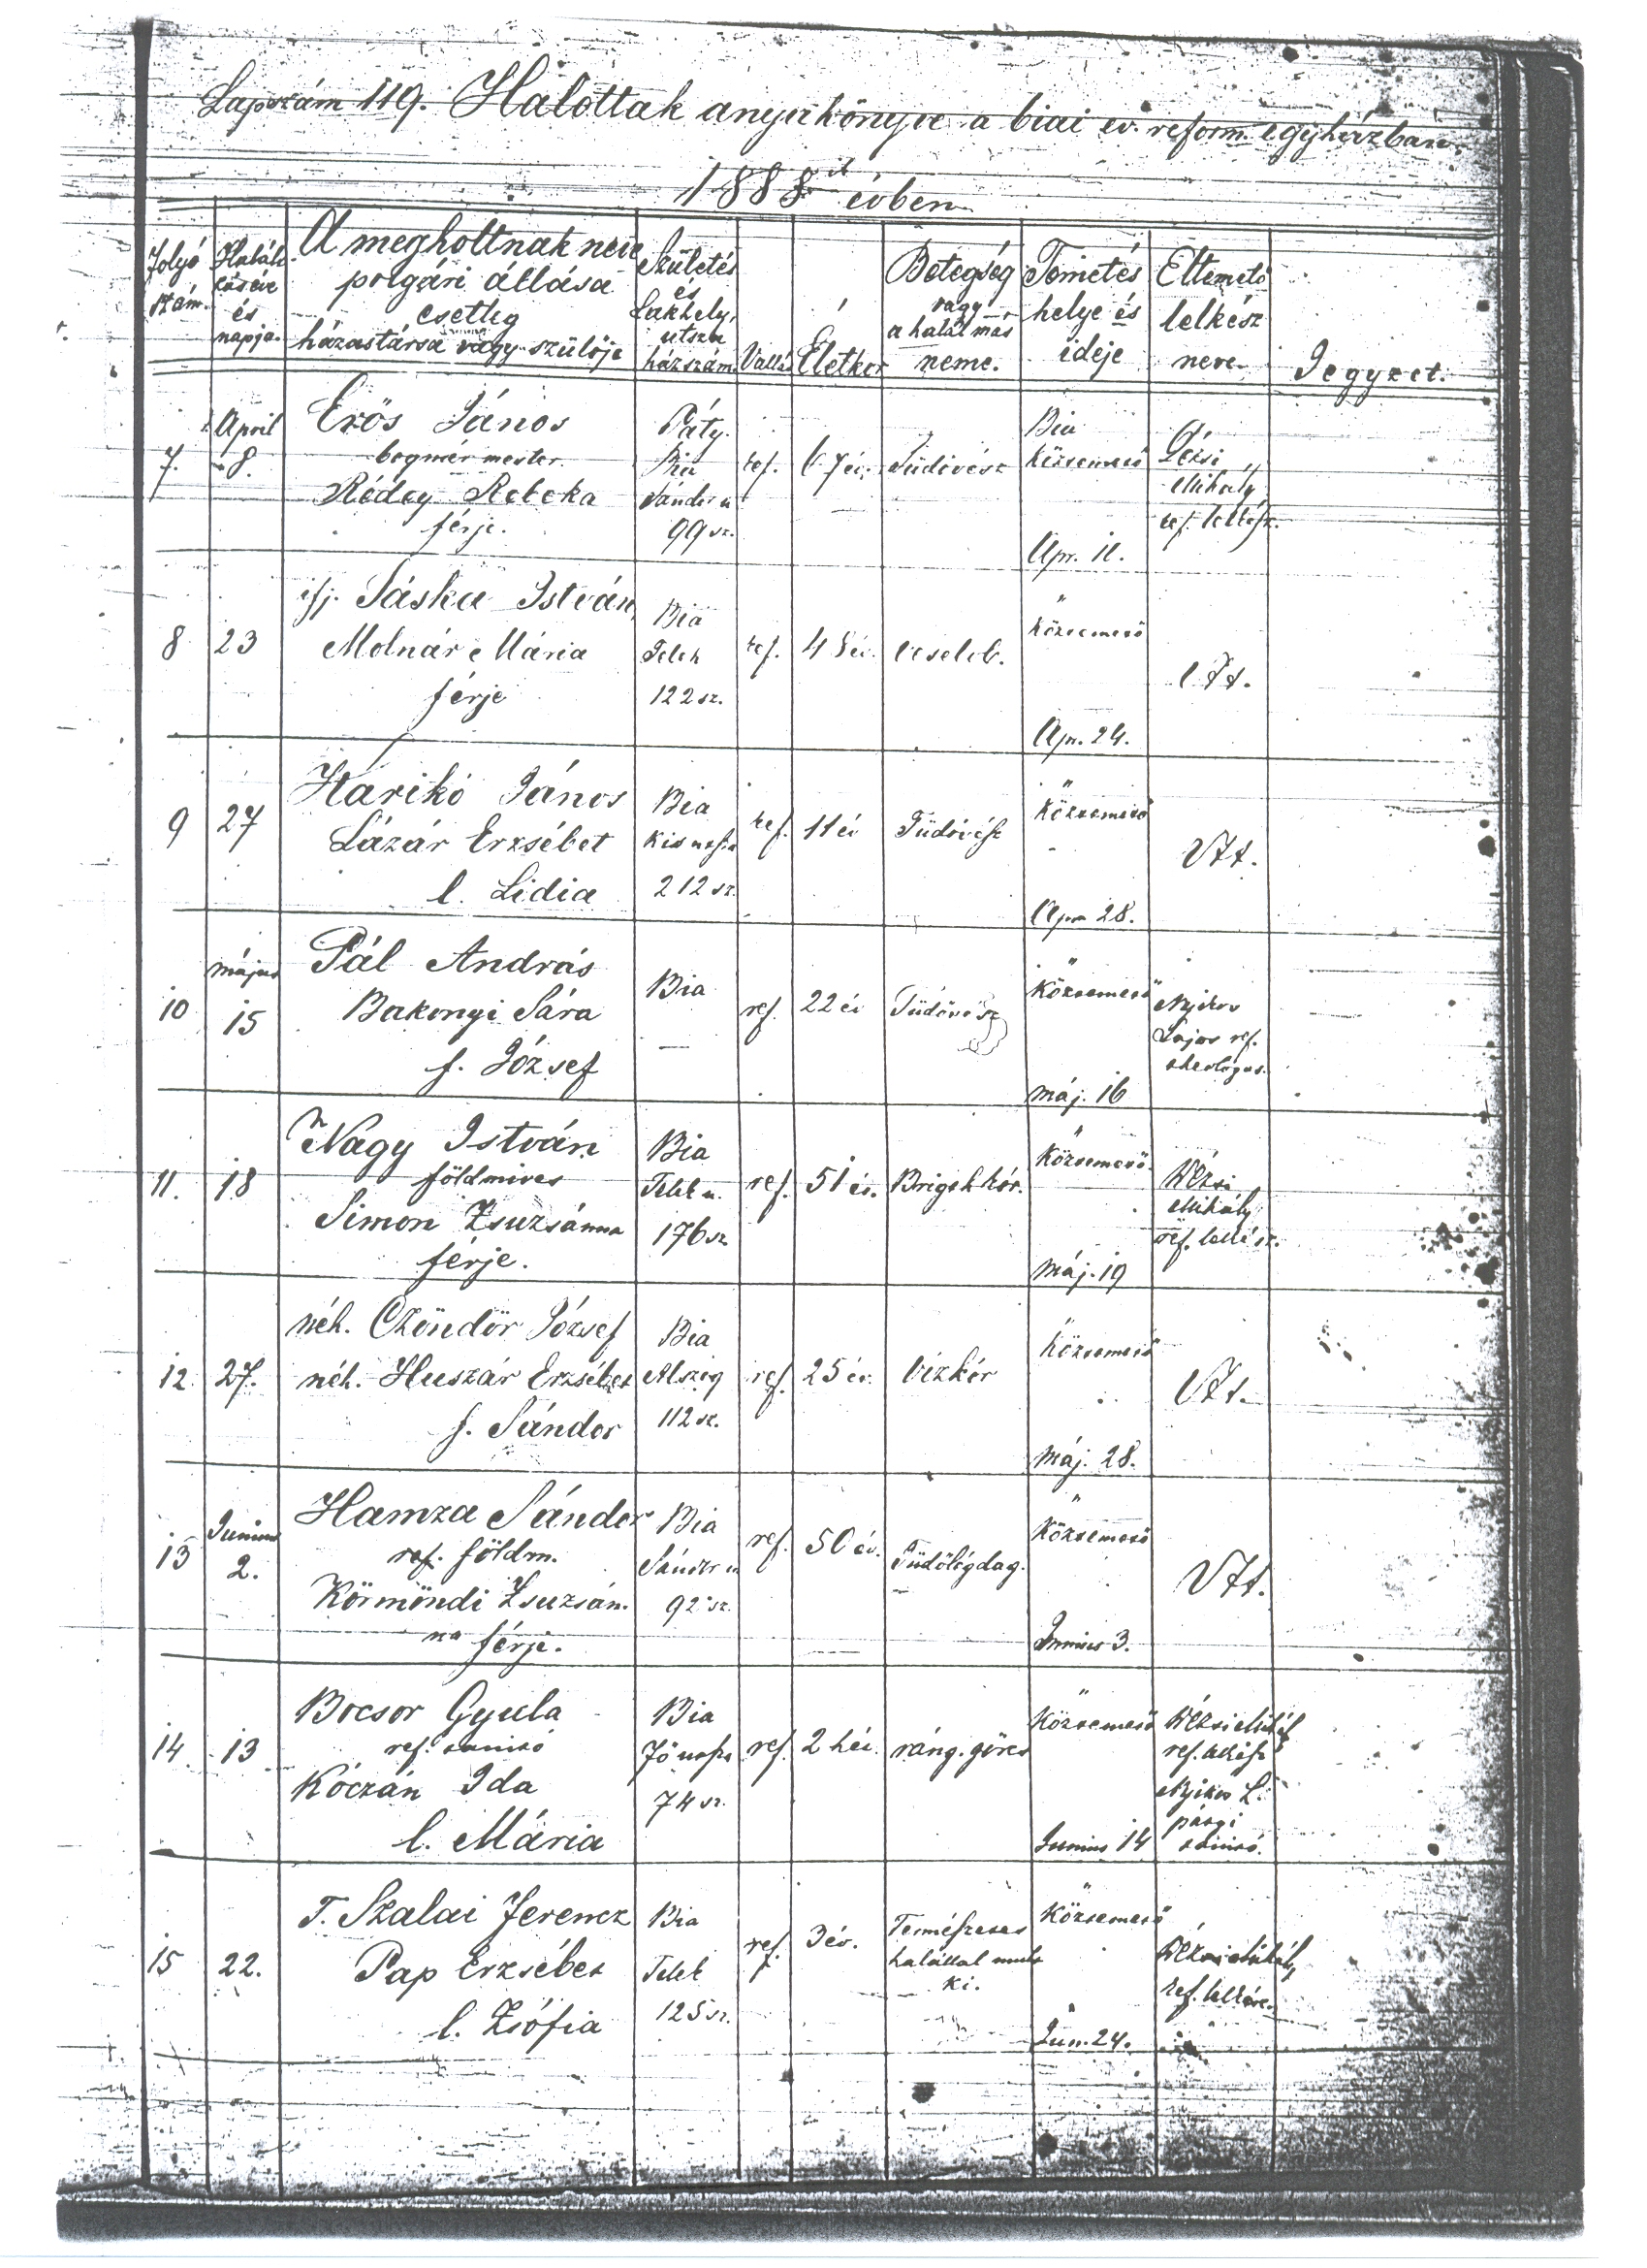 Lapszám 119. Halottak anyakönyve a biai ev. reform. egyházban.
1888ik évben
Folyó szám.
Halálozás éve és napja.
A megholtnak neve polgári állása esetleg házastársa vagy szülője
Születés és Lakhely, utsza házszám.
Vallás
Életkor
Betegség vagy a halál más neme.
Temetés helye és ideje
Eltemető lelkész neve.
Jegyzet.
7.
April 8.
Erős János
bognár mester.
Rédey Rebeka
férje.
Páty.
Bia
Sándor u
99 sz.
ref.
67 év.
Tüdővész
Bia
Köztemető
Apr. 10.
Mihály
ref. lelkész.
8
23
ifj. Sáska István,
Molnár Mária
férje
Bia
Telek
122 sz.
ref.
48 év.
Köztemető
Apr. 24.
9
27
Harikó János
Lázár Erzsébet
l. Lidia
Bia
Kis utsza
212 sz.
ref.
11 év
Tüdővész
Köztemető
Apr. 28.
10
május
15
Pál András
Bakonyi Sára
f. József
Bia
—
ref.
22 év
Tüdővész
Köztemető
máj. 16
Nyikos
Lajos ref.
theologus.
11.
18
Nagy István
földmives
Simon Zsuzsánna
férje.
Bia
Telek u.
176 sz
ref.
51 év.
Brigth kór.
Köztemető
máj. 19
Mihály
ref. lelkész.
12
27.
néh. Czöndör József
néh. Huszár Erzsébet
f. Sándor
Bia
Alszeg
112 sz.
ref.
25 év.
Vízkór
Köztemető
máj. 28.
13
Junius
2.
Hamza Sándor
ref. földm.
Körmöndi Zsuzsán.
na férje.
Bia
Sándor u
92 sz.
ref.
50 év.
Tüdőlégdag.
Köztemető
Junius 3.
14
13
Bocsor Gyula
ref. tanitó
Kóczán Ida
l. Mária
Bia
Fő utsza
74 sz.
ref.
2 hév.
ráng. görcs
Köztemető
Junius 14
ref. lelkész
Nyikos L.
tanitó.
15
22.
T. Szalai Ferencz
Pap Erzsébet
l. Zsófia
Bia
Telek
125 sz.
ref.
3 év.
Természetes
halállal mult
ki.
Köztemető
Jun. 24.
ref. lelkész.